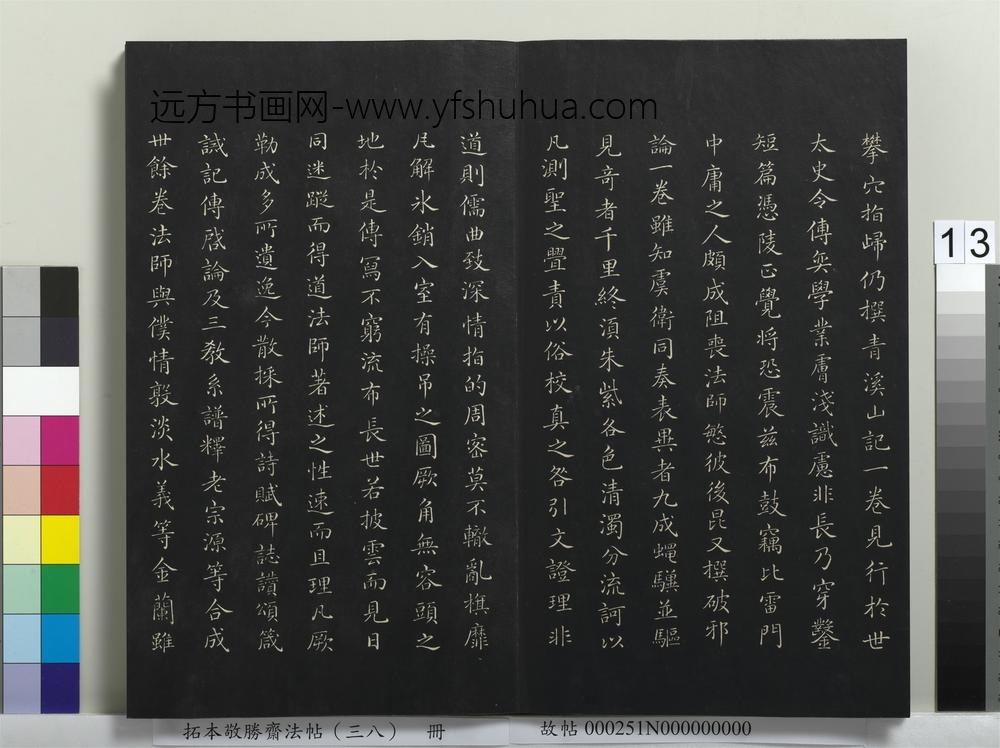 远方书画网-www.yfshuhua.com
攀穴指歸仍撰青溪山記一卷見行於世
太史令傅奕學業膚淺識慮非長乃穿鑿
短篇憑陵正覺将恐震兹布鼓竊比雷門
中庸之人頗成阻喪法師愍彼後昆又撰破邪
論一卷雖知虞衛同奏表異者九成蠅驥並驅
見奇者千里終湏朱紫各色清濁分流訶以
凡測聖之舋責以俗校真之咎引文證理非
道則儒曲致深情指的周密莫不轍亂旗靡
瓦解氷銷入室有操吊之圖厥角無容頭之
地於是傳寫不窮流布長世若披雲而見日
同迷蹤而得道法師著述之性速而且理凡厥
勒成多所遺逸今散採所得詩賦碑誌讚頌箴
誡記傳啓論及三教系譜釋老宗源等合成
卅餘卷法師與僕情敦淡水義等金蘭雖
13
拓本敬勝齋法帖（三八） 冊
故帖 000251N000000000